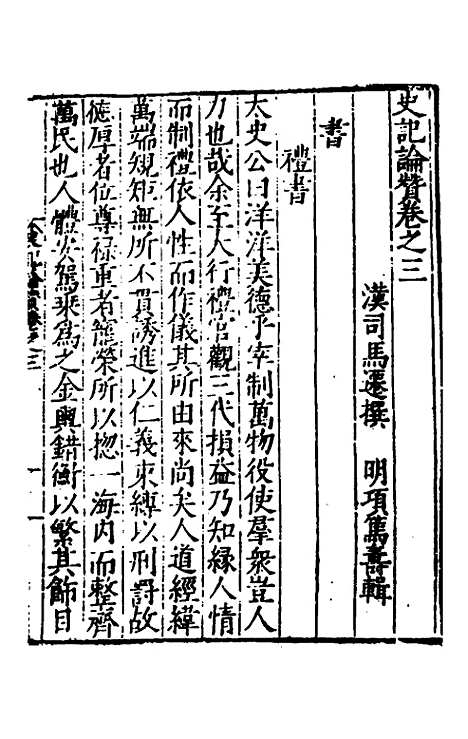 史記論贊卷之三
漢司馬遷撰　明項篤壽輯
書
禮書
太史公曰洋洋美德乎宰制萬物役使羣衆豈人
力也哉余至大行禮官觀三代損益乃知緣人情
而制禮依人性而作儀其所由來尚矣人道經緯
萬端規矩無所不貫誘進以仁義束縛以刑罰故
德厚者位尊祿重者寵榮所以揔一海內而整齊
萬民也人體安駕乘爲之金輿錯衡以繁其飾目